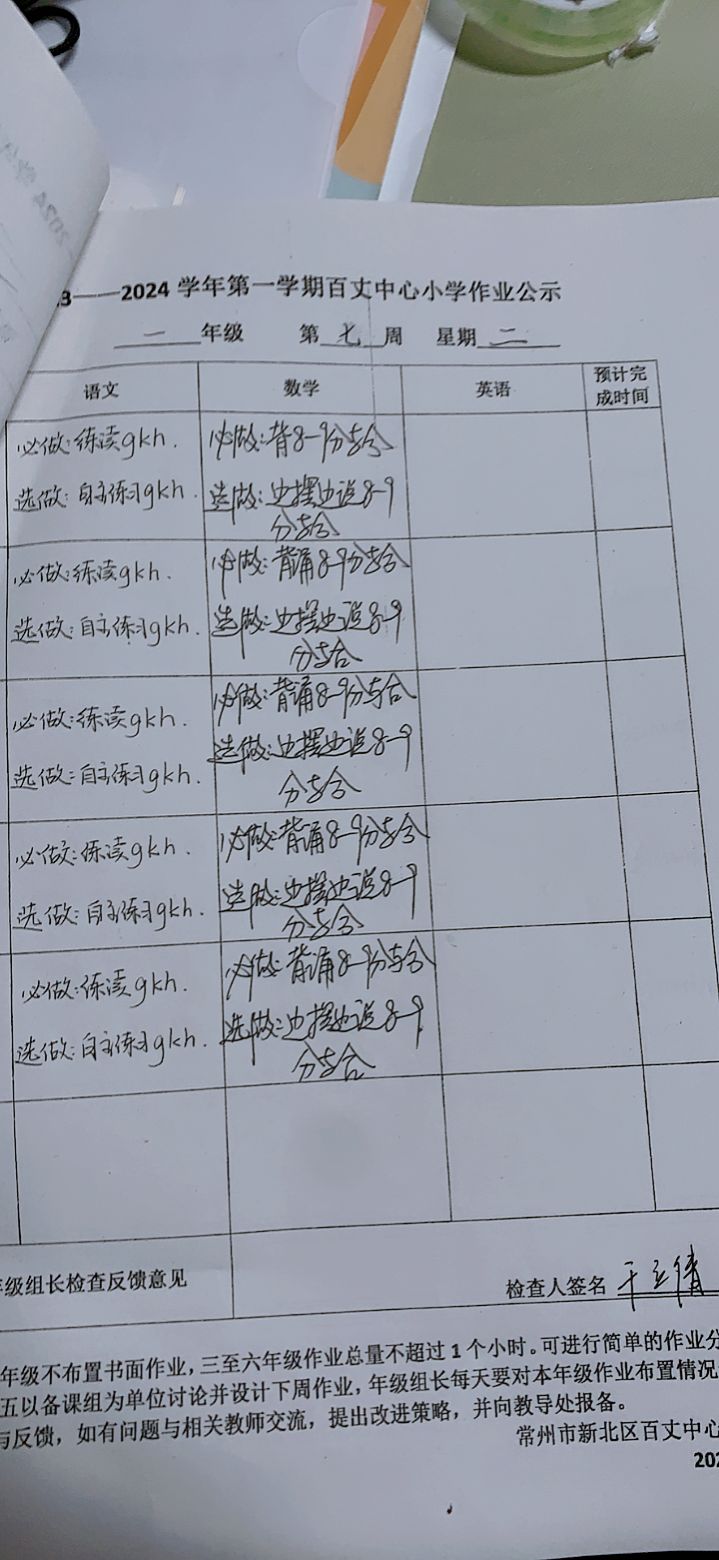 3——2024 学年第一学期百丈中心小学作业公示
一 年级 第 七 周 星期 二
语文 数学 英语 预计完成时间
必做：练读gkh. 必做：背8-9分与合
选做：自主练习gkh. 选做：边摆边说8-9
分与合
必做：练读gkh. 必做：背诵8-9分与合
选做：自主练习gkh. 选做：边摆边说8-9
分与合
必做：练读gkh. 必做：背诵8-9分与合
选做：自主练习gkh. 选做：边摆边说8-9
分与合
必做：练读gkh. 必做：背诵8-9分与合
选做：自主练习gkh. 选做：边摆边说8-9
分与合
必做：练读gkh. 必做：背诵8-9分与合
选做：自主练习gkh. 选做：边摆边说8-9
分与合
年级组长检查反馈意见
检查人签名
年级不布置书面作业，三至六年级作业总量不超过 1 个小时。可进行简单的作业分
五以备课组为单位讨论并设计下周作业，年级组长每天要对本年级作业布置情况
与反馈，如有问题与相关教师交流，提出改进策略，并向教导处报备。
常州市新北区百丈中心
202